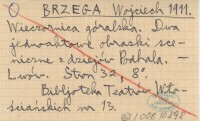 BRZEGA Wojciech 1911.
Wieczornica góralska. Dwa
jednoaktowe obrazki sce-
niczne z dziejów Podhala. —
Lwów. Stron 32, 8°.
Bibljoteka Teatrów Wło-
ściańskich nr 13.